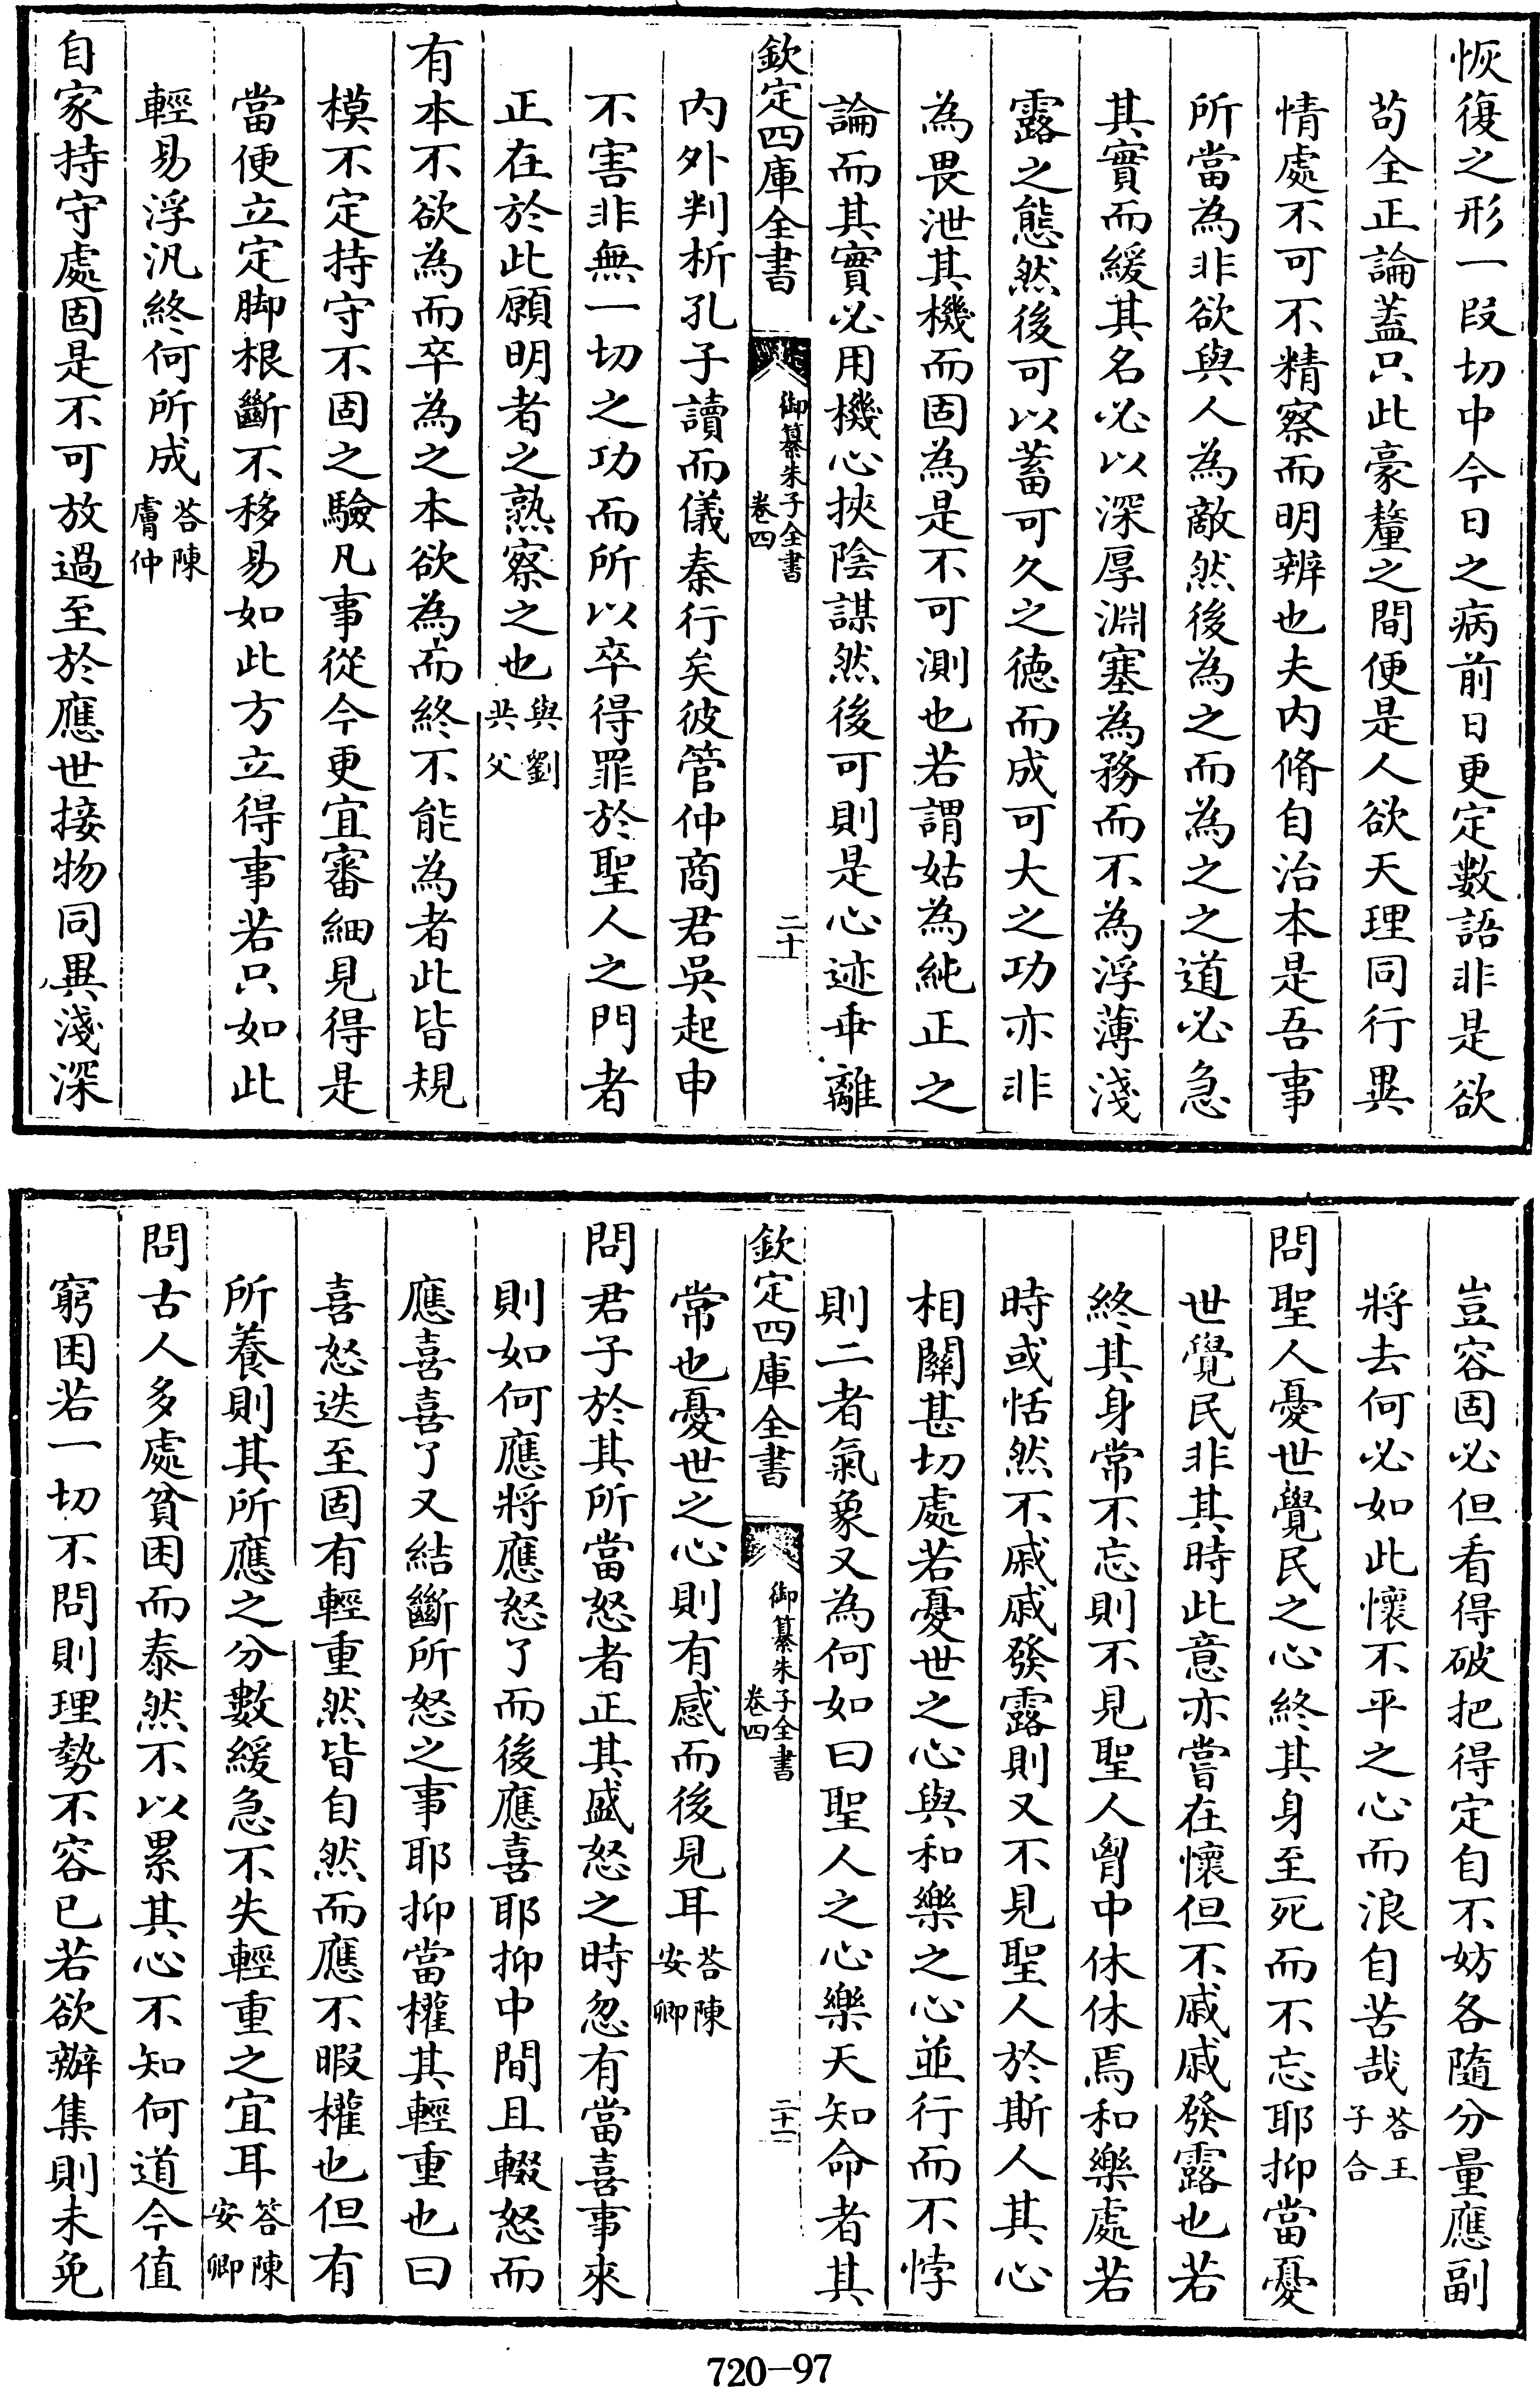 恢復之形一段切中今日之病前日更定數語非是欲
苟全正論蓋只此豪釐之間便是人欲天理同行異
情處不可不精察而明辨也夫内脩自治本是吾事
所當為非欲與人為敵然後為之而為之之道必急
其實而緩其名必以深厚淵塞為務而不為浮薄淺
露之態然後可以蓄可久之徳而成可大之功亦非
為畏泄其機而固為是不可測也若謂姑為純正之
論而其實必用機心挾陰謀然後可則是心迹乖離
欽定四庫全書
御纂朱子全書
卷四
二十
内外判析孔子讀而儀秦行矣彼管仲商君吳起申
不害非無一切之功而所以卒得罪於聖人之門者
正在於此願明者之熟察之也與劉共父
有本不欲為而卒為之本欲為而終不能為者此皆規
模不定持守不固之驗凡事從今更宜審細見得是
當便立定脚根斷不移易如此方立得事若只如此
輕易浮汎終何所成荅陳膚仲
自家持守處固是不可放過至於應世接物同異淺深
豈容固必但看得破把得定自不妨各隨分量應副
將去何必如此懷不平之心而浪自苦哉荅王子合
問聖人憂世覺民之心終其身至死而不忘耶抑當憂
世覺民非其時此意亦嘗在懷但不戚戚發露也若
終其身常不忘則不見聖人胷中休休焉和樂處若
時或恬然不戚戚發露則又不見聖人於斯人其心
相關甚切處若憂世之心與和樂之心並行而不悖
則二者氣象又為何如曰聖人之心樂天知命者其
欽定四庫全書
御纂朱子全書
卷四
二十一
常也憂世之心則有感而後見耳荅陳安卿
問君子於其所當怒者正其盛怒之時忽有當喜事來
則如何應將應怒了而後應喜耶抑中間且輟怒而
應喜喜了又結斷所怒之事耶抑當權其輕重也曰
喜怒迭至固有輕重然皆自然而應不暇權也但有
所養則其所應之分數緩急不失輕重之宜耳答陳安卿
問古人多處貧困而泰然不以累其心不知何道今值
窮困若一切不問則理勢不容已若欲辦集則未免
720-97